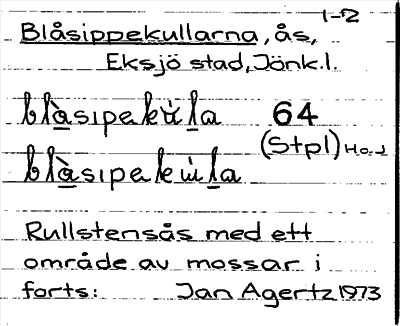 1-2
Blåsippekullarna, ås,
Eksjö stad, Jönk.l.
blàsıpekù̇la 64
(Stpl) H.o.J
blàsıpekù̇la
Rullstensås med ett
område av mossar i
forts: Jan Agertz 1973